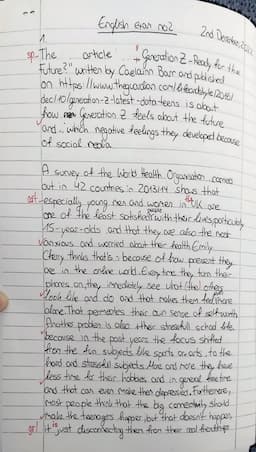 English exam no2
2nd December, 2022
1.
sp - The article "Generation Z - Ready for the
future?" written by Caelainn Barr and published
on https://www.theguardian.com/lifeandstyle/2016/
dec/10/generation-z-latest-data-teens is about
how Generation Z feels about the future
and which negative feelings they developed because
of social media.
A survey of the World Health Organisation carried
out in 42 countries in 2013/14 shows that
especially young men and women in the UK are
one of the least satisfied people with their lives, particularly
15-year-olds and that they are also the most
anxious and worried about their health. Emily
Cherry thinks that is because of how present they
are in the online world. Every time they turn their
phones on, they immediately see what (the) others
look like and do and that makes them feel more
alone. That permeates their own sense of self-worth.
Another problem is also their stressfull school life
because in the past years the focus shifted
from the fun subjects like sports or arts, to the
hard and stressfull subjects. More and more they have
less time for their hobbies and in general free time
and that can even make them depressed. Furthermore,
most people think that the big connectivity should
make the teenagers happier, but that doesn't happen,
gr it is just disconnecting them from their real friendships